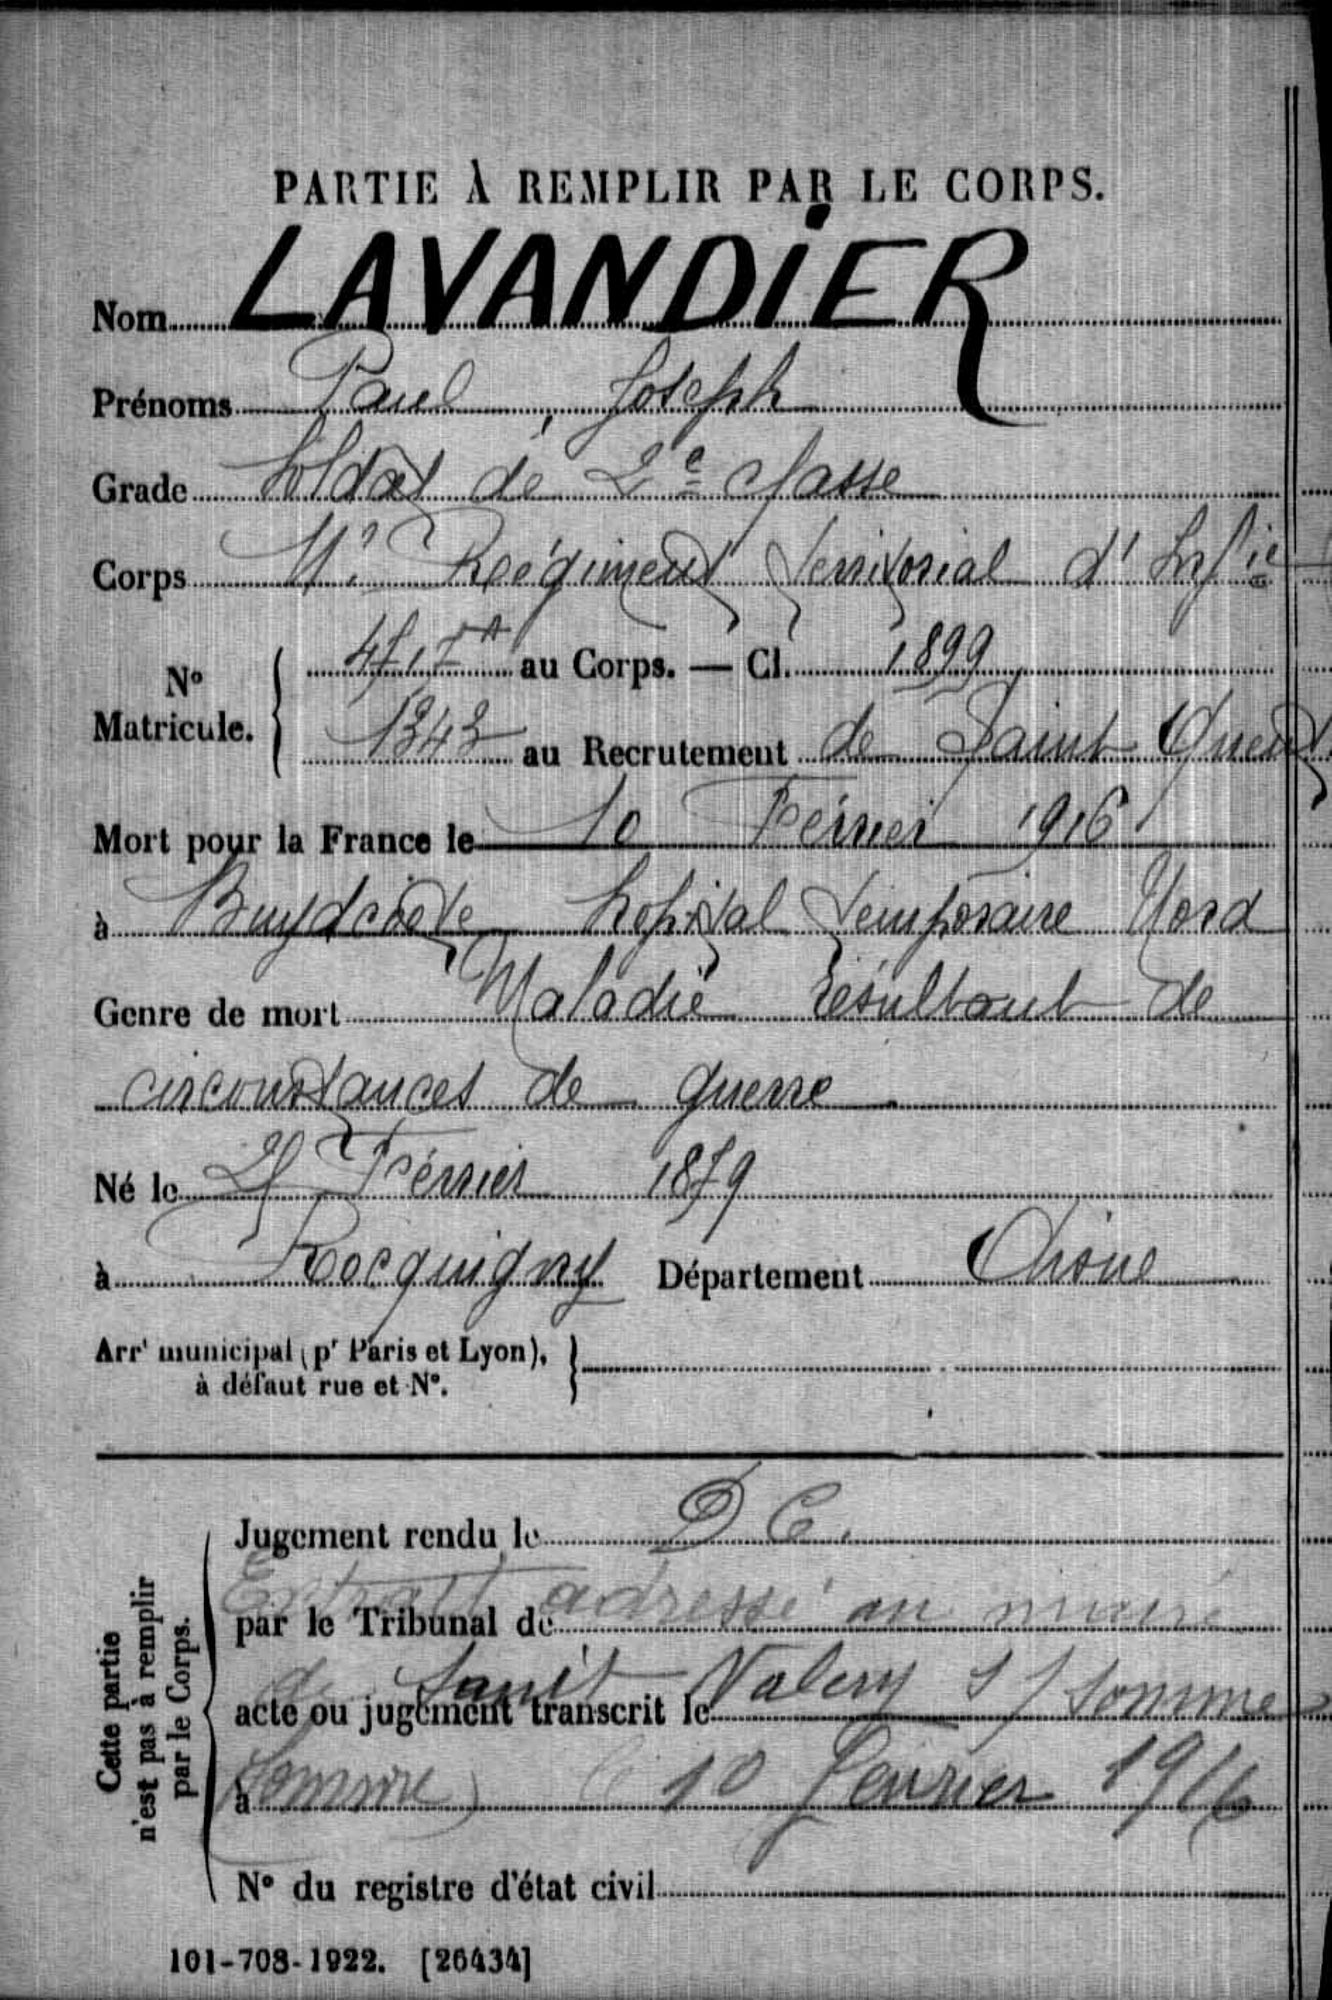 PARTIE À REMPLIR PAR LE CORPS.
Nom LAVANDIER
Prénoms Paul, Joseph
Grade Soldat de 2e classe
Corps Régiment Territorial d'Infie
No Matricule. au Corps. — Cl. 1899
1343 au Recrutement de Saint Quent
Mort pour la France le 10 Février 1916
à Zuydcoote hopital temporaire Nord
Genre de mort Maladie résultant de
circonstances de guerre
Né le Février 1879
à Rocquigny Département Aisne
Arrt municipal (pr Paris et Lyon),
à défaut rue et No.
Cette partie
n'est pas à remplir
par le Corps.
Jugement rendu le D C.
Extrait adressé au maire
par le Tribunal de
de Saint Valery s/ Somme
acte ou jugement transcrit le
à Somme) le 10 février 1916
No du registre d'état civil
101-708-1922. [26434]